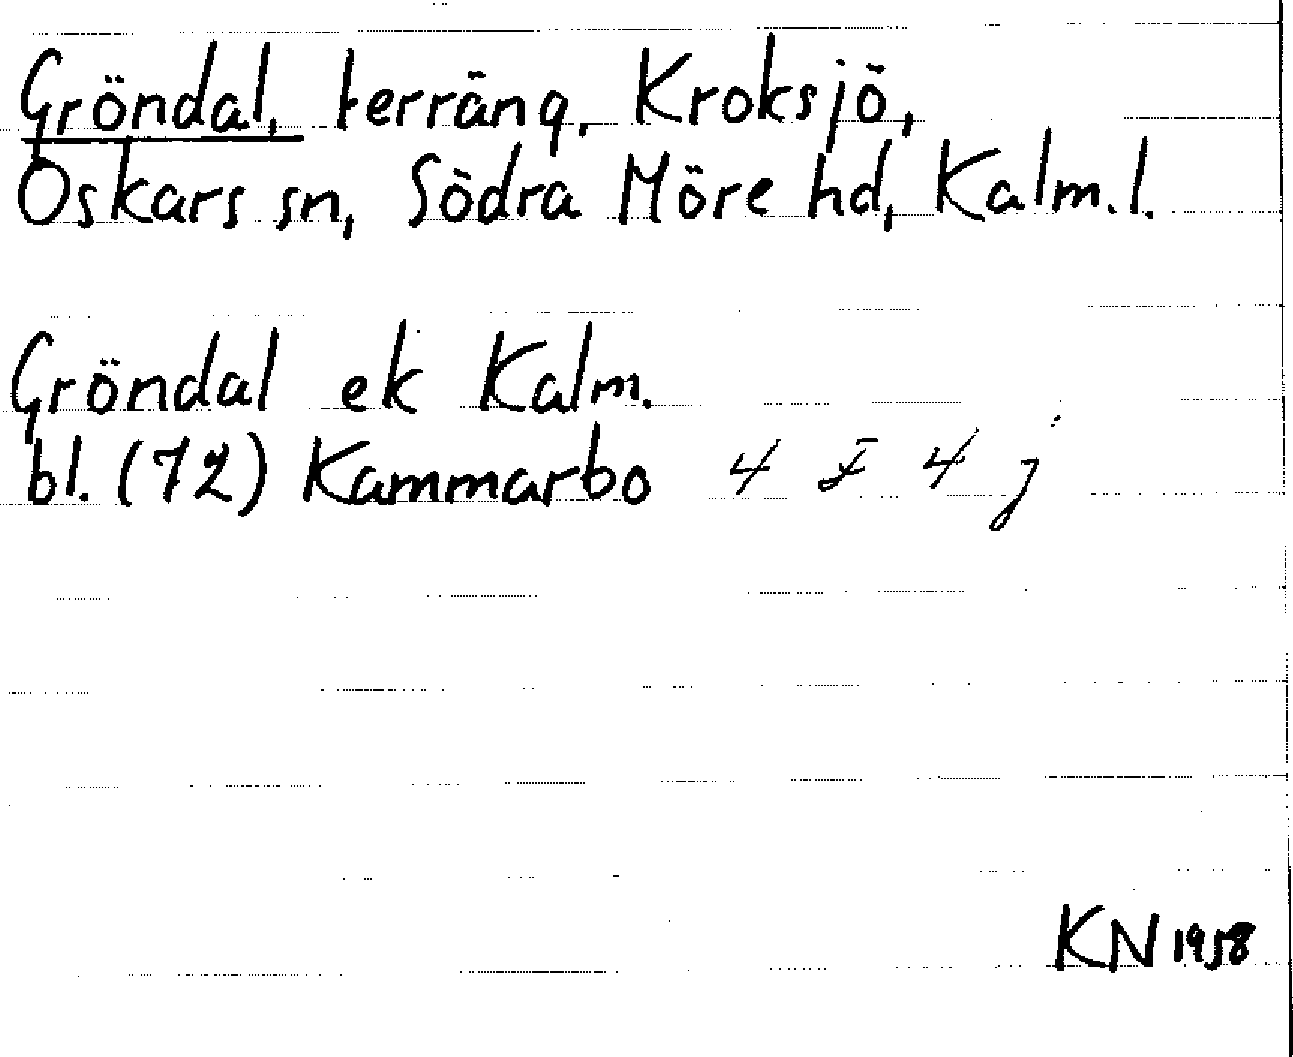 Gröndal, terräng, Kroksjö,
Oskars sn, Södra Möre hd, Kalm. l.
Gröndal ek Kalm.
bl. (72) Kammarbo 4 F 4 j
KN 1958